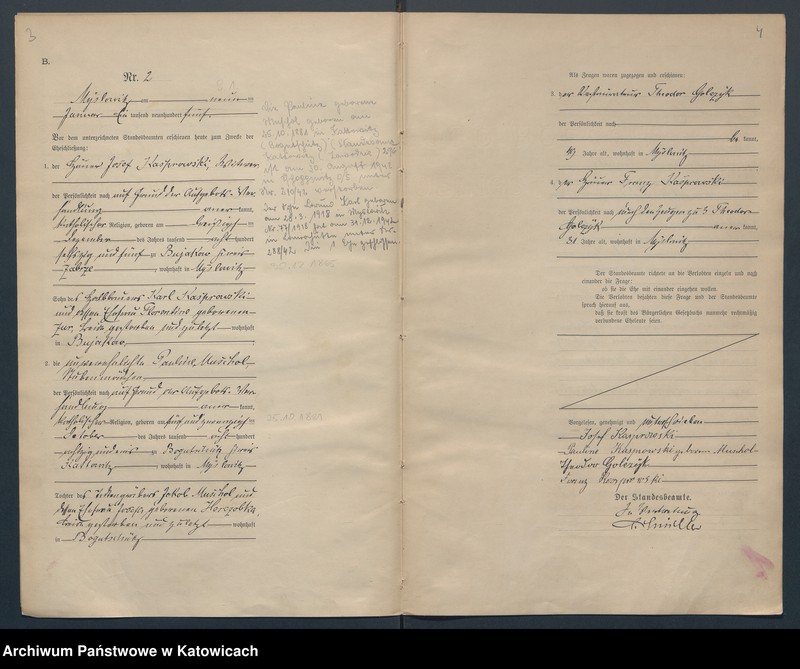 3
B.
Nr. 2
Myslowitz, am neun
Januar Ein tausend neunhundert fünf.
Vor dem unterzeichneten Standesbeamten erschienen heute zum Zwecke der
Eheschließung:
1. der Häuer Josef Kasprowski, Witwer
der Persönlichkeit nach auf Grund der Aufgebots-Ver
handlung anerkannt,
katholischer Religion, geboren am dreißigsten
Dezember des Jahres tausend acht hundert
sechzig und fünf zu Bujakow, Kreis
Zabrze, wohnhaft in Myslowitz
Sohn des Halbbauers Karl Kasprowski
und dessen Ehefrau Florentine geborenen
beide gestorben und zuletzt wohnhaft
in Bujakow,
2. die unverehelichte Pauline Muschol
Stubenmädchen
der Persönlichkeit nach auf Grund der Aufgebots-Ver
handlung anerkannt,
katholischer Religion, geboren am fünfundzwanzigsten
Oktober des Jahres tausend acht hundert
achtzig und eins zu Bogutschütz Kreis
Kattowitz, wohnhaft in Myslowitz
Tochter des Jakob Muschol und
dessen Ehefrau Josefa geborenen
beide gestorben und zuletzt wohnhaft
in Bogutschütz
Die Pauline geborene
Muschol geboren am
25.10.1881 in Kattowitz
(Bogutschütz) (Standesamt
Kattowitz
ist am 30. August 1942
in
Nr. 210/42 verstorben
Der Sohn Karl geboren
am 28.3.1918 in Myslowitz
Nr. 77/1918 hat am 31.12.1942
in unter Nr.
238/42 die 1. Ehe geschlossen.
30.12.1865
25.10.1881
4
Als Zeugen waren zugezogen und erschienen:
3. der Theodor Golczyk
der Persönlichkeit nach
bekannt,
Jahre alt, wohnhaft in Myslowitz
4. der Häuer Franz Kasprowski
der Persönlichkeit nach durch den Zeugen zu 3 Theodor
Golczyk anerkannt,
31 Jahre alt, wohnhaft in Myslowitz
Der Standesbeamte richtete an die Verlobten einzeln und nach
einander die Frage:
ob sie die Ehe mit einander eingehen wollen.
Die Verlobten bejahten diese Frage und der Standesbeamte
sprach hierauf aus,
daß sie kraft des Bürgerlichen Gesetzbuchs nunmehr rechtmäßig
verbundene Eheleute seien.
Vorgelesen, genehmigt und unterschrieben
Josef Kasprowski
Pauline Kasprowski geborene Muschol
Theodor Golczyk
Franz Kasprowski
Der Standesbeamte.
In Vertretung
Archiwum Państwowe w Katowicach